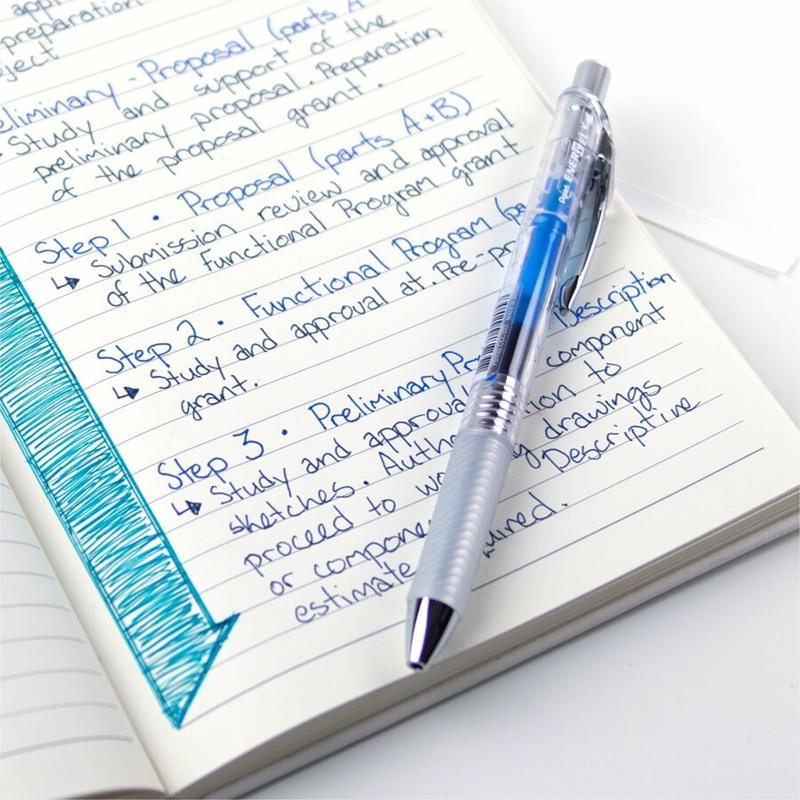 preparation
Preliminary-Proposal (parts A
Study and support of the
preliminary proposal. Preparation
of the proposal grant.
Step 1 • Proposal (parts A+B)
↳ Submission review and approval
of the Functional Program grant
Step 2 • Functional Program (pa
↳ Study and approval at. Pre-pr
grant.
Step 3 • Preliminary Pr Description
↳ Study and approval component
sketches. Auth tion to
proceed to wo g drawings
or compone Descriptive
estimate uired.
Pentel ENERGEL